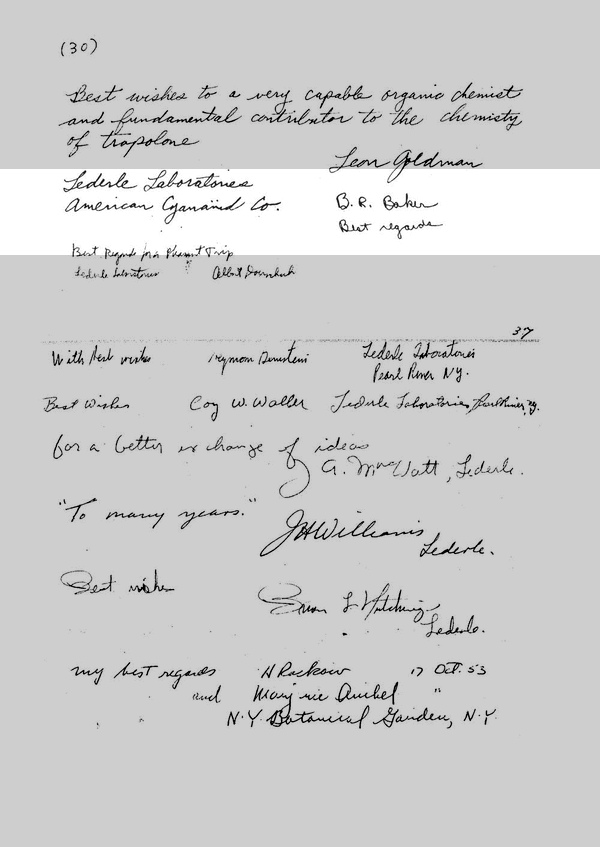 (30)
Best wishes to a very capable organic chemist
and fundamental contributor to the chemisty
of tropolone
Leon Goldman
Lederle Laboratories
American Cyanamid Co.
B. R. Baker
Best regards
Best Regards for a Pleasant Trip
Lederle Laboratories Albert
37
With best wishes Seymour Bernstein Lederle Laboratories
Pearl River N.Y.
Best Wishes Coy W. Waller Lederle Laboratories, Pearl River, N.Y.
for a better exchange of ideas
Lederle.
"To many years."
JHWilliams
Lederle.
Best wishes
Hutchings
Lederle.
my best regards H Rackow 17 Oct. 53
and Marjorie Anchel "
N.Y. Botanical Garden, N.Y.